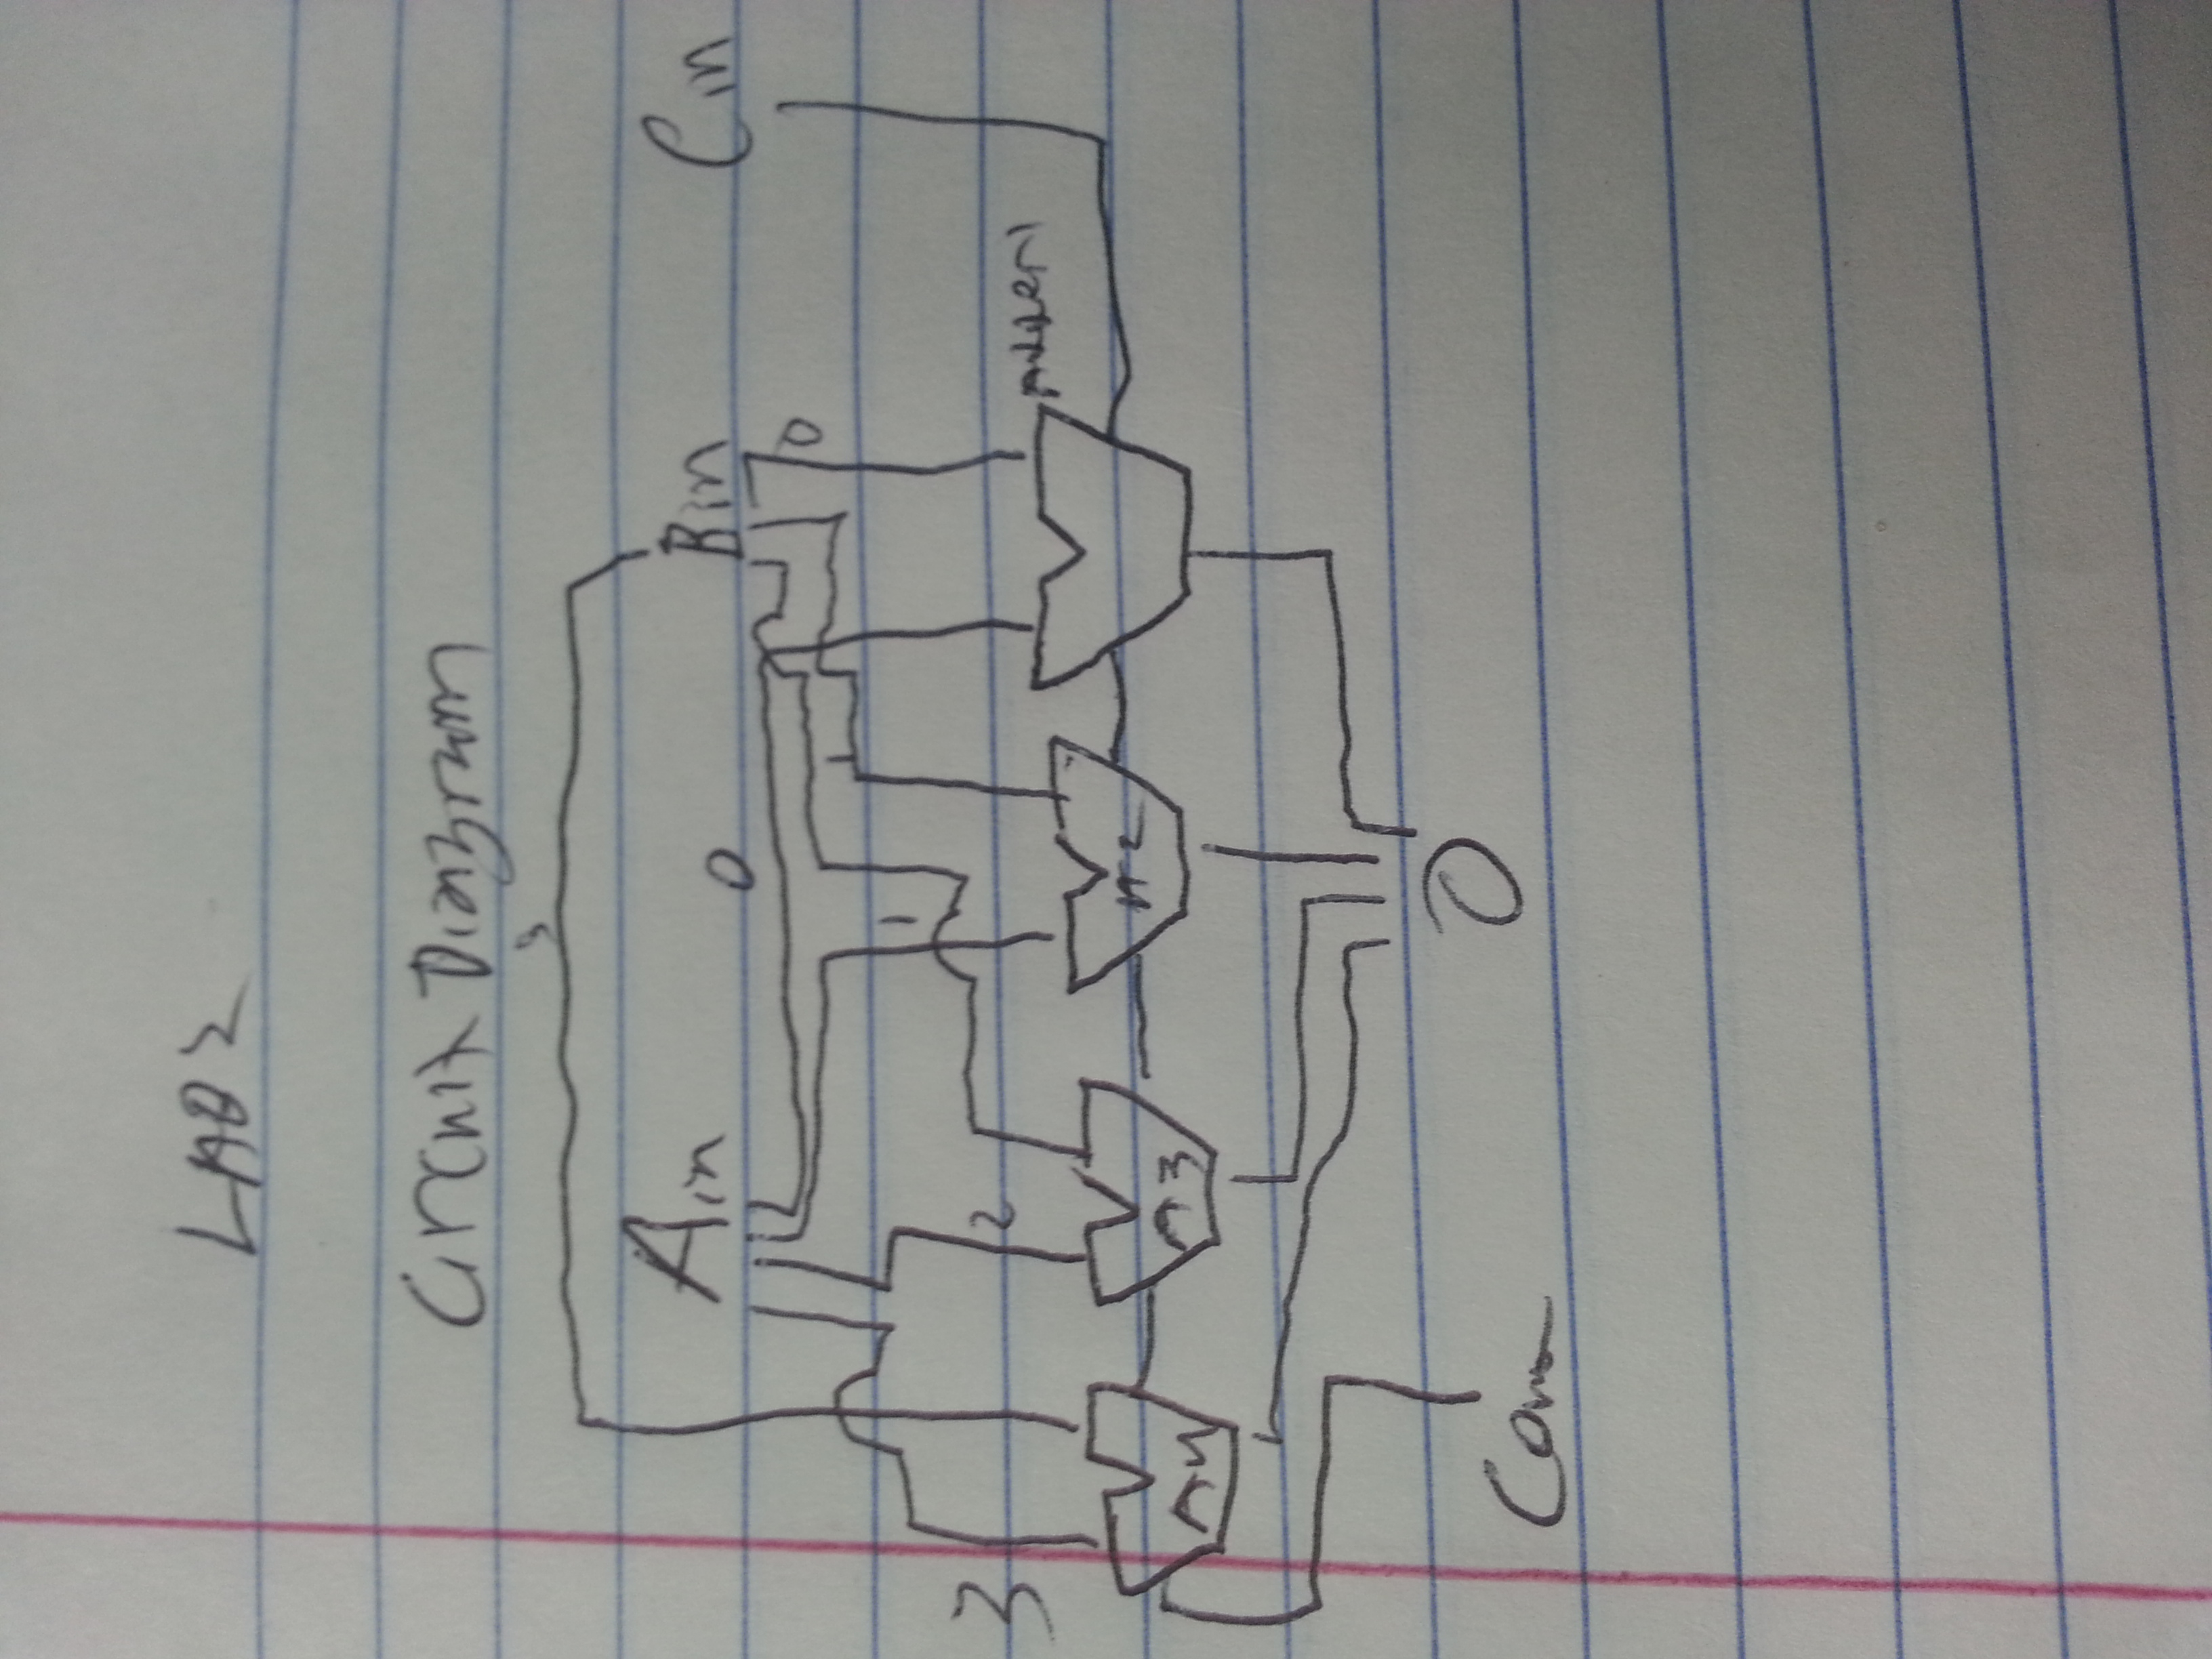 LAB 2
Circuit Diagram
3
Ain 0 Bin Cin
0
1
1
3 2
Adder1
A4 A3 A2
O